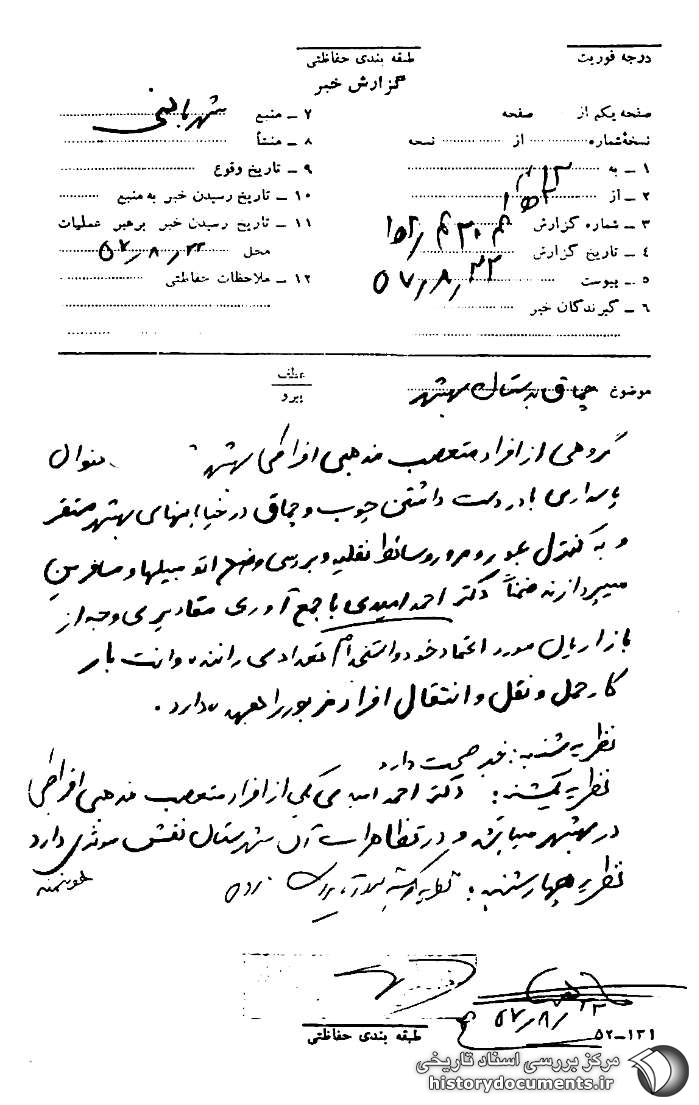 درجه فوریت
طبقه بندی حفاظتی
گزارش خبر
صفحه یکم از صفحه
نسخهٔ شماره از نسخه
۱ ـ به ۳۱۲
۲ ـ از
۳ ـ شماره گزارش
۴ ـ تاریخ گزارش
۵ ـ پیوست ۵۷٫۸٫۲۲
۶ ـ گیرندگان خبر
۷ ـ منبع
۸ ـ منشأ
۹ ـ تاریخ وقوع
۱۰ ـ تاریخ رسیدن خبر به منبع
۱۱ ـ تاریخ رسیدن خبر برهبر عملیات
محل ۵۷٫۸٫۲۲
۱۲ ـ ملاحظات حفاظتی
عطف
پیرو
موضوع چماق بدستان بهشهر
گروهی از افراد متعصب مذهبی افراطی بهشهر منوال
پاسداری با در دست داشتن چوب و چماق در خیابانهای بهشهر مستقر
و به کنترل عبور و مرور وسائط نقلیه و بررسی وضع اتومبیلها و مسافرین
میپردازند ضمناً دکتر احمد امیدی با جمع آوری مقادیری وجه از
بازاریان مورد اعتماد خود و استخدام تعدادی راننده وانت بار
کار حمل و نقل و انتقال افراد مزبور را بعهده دارد .
نظریه شنبه : خبر صحت دارد
نظریه یکشنبه : دکتر احمد امیدی یکی از افراد متعصب مذهبی افراطی
در بهشهر میباشد و در تظاهرات آن شهرستان نقش موثری دارد
نظریه چهارشنبه :
طبقه بندی حفاظتی
۵۲-۱۳۱
مرکز بررسی اسناد تاریخی
historydocuments.ir